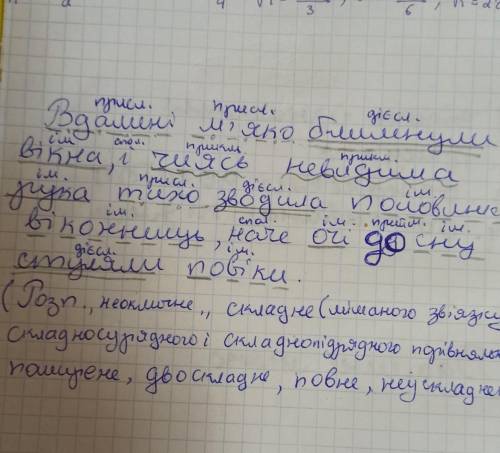 присл. присл. дієсл.
Вдалині м'яко блимнули
ім. спол. прикм. прикм.
вікна, і чиясь невидима
ім. присл. дієсл. ім.
рука тихо зводила половинк
ім. спол. ім. прийм. ім.
віконниць, наче очі до сну
дієсл. ім.
стуляли повіки.
(Розп., неокличне,, складне (мішаного звіязку
складносурядного і складнопідрядного порівняль
поширене, двоскладне, повне, неускладне